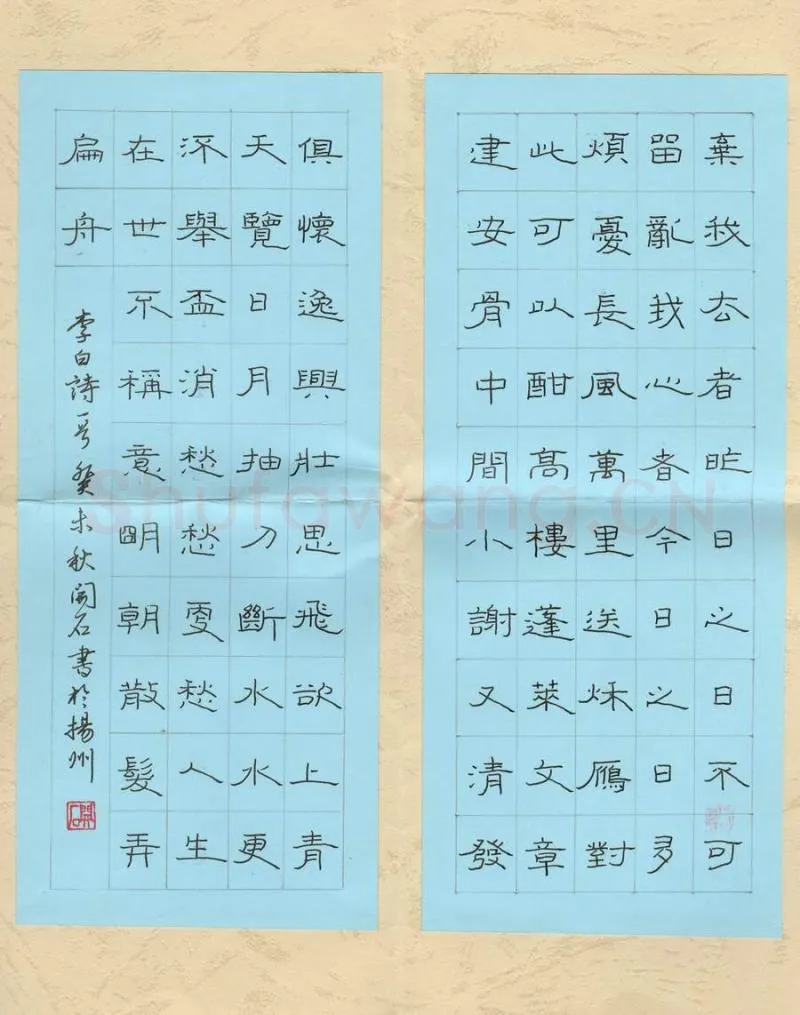 棄我去者昨日之日不可
留亂我心者今日之日多
煩憂長風萬里送秋鴈對
此可以酣高樓蓬萊文章
建安骨中間小謝又清發
俱懷逸興壯思飛欲上青
天覽日月抽刀斷水水更
流舉盃消愁愁更愁人生
在世不稱意明朝散髮弄
扁舟
李白詩一首癸未秋開石書於揚州
Shufawang.CN